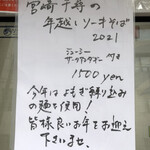 宮崎千尋の
年越しソーキそば
2021
ジューシー
サーターアンダギー 付き
1500 yen
今年はよもぎ練り込み
の麺を使用！
皆様良いお年をお迎え
下さいませ。